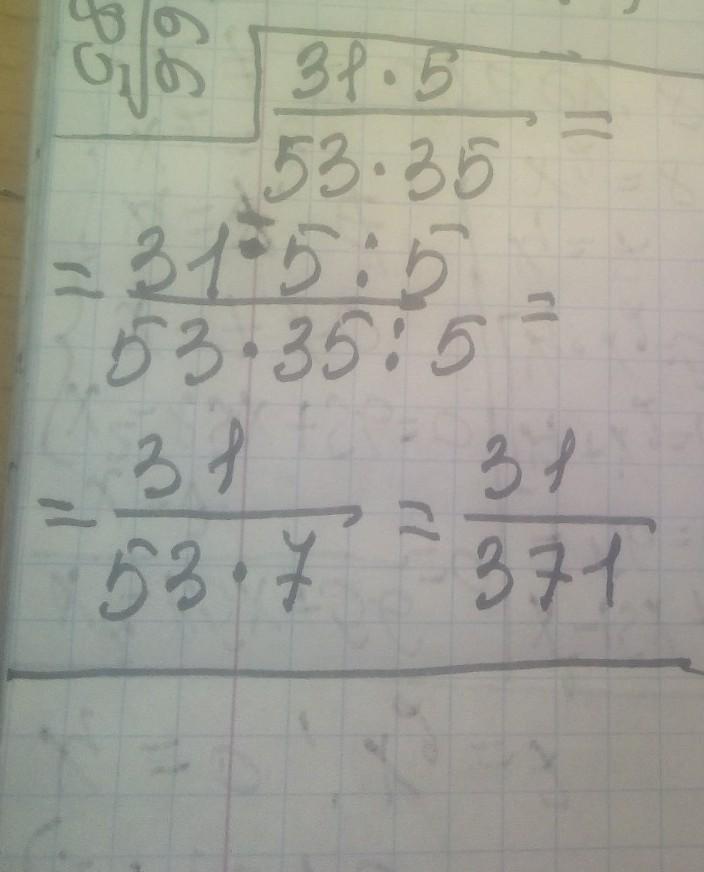 31 · 5 / 53 · 35 =
= 31 · 5 : 5 / 53 · 35 : 5 =
= 31 / 53 · 7 = 31 / 371